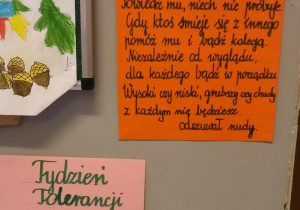 Powiedz mu, niech nie próbuje
Gdy ktoś śmieje się z innego
pomóż mu i bądź kolegą.
Niezależnie od wyglądu,
dla każdego bądź w porządku
Wysoki czy niski, grubszy czy chudy
z każdym nie będziesz
odczuwał nudy.
Tydzień
Tolerancji